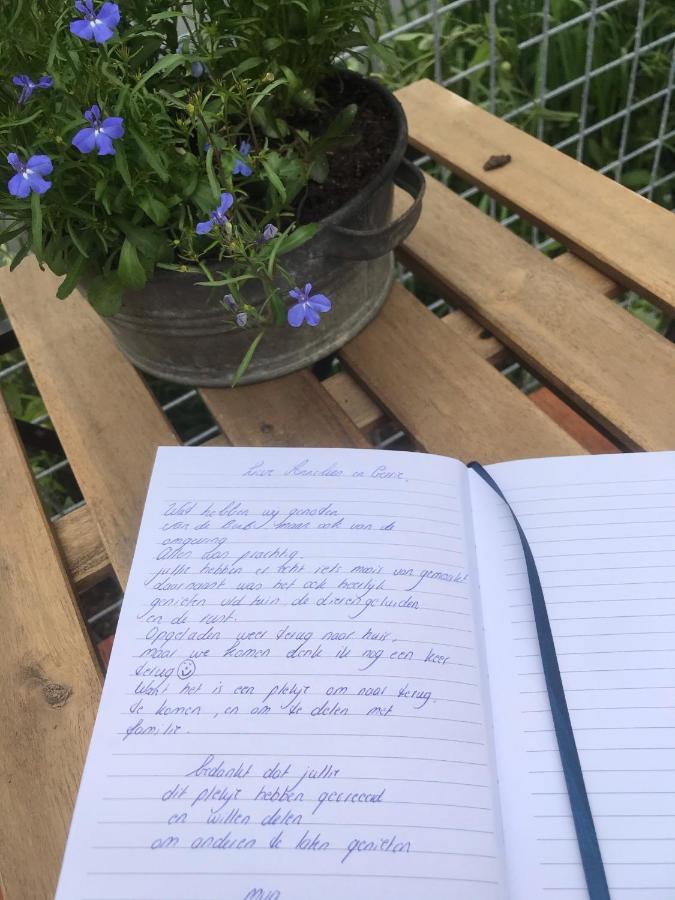 Lieve Annelies en Gerrie.
Wat hebben wij genoten
van de B&B maar ook van de
omgeving
Alles was prachtig.
jullie hebben er echt iets moois van gemaakt
daarnaast was het ook heerlijk
genieten v/d tuin, de dierengeluiden
en de rust.
Opgeladen weer terug naar huis,
maar we komen denk ik nog een keer
terug
Want het is een plekje om naar terug
te komen, en om te delen met
familie.
Bedankt dat jullie
dit plekje hebben gecreeerd
en willen delen
om anderen te laten genieten